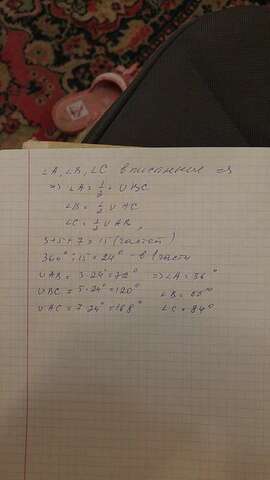 ∠A, ∠B, ∠C вписанные ⇒
⇒ ∠A = 1/2 ∪ BC
∠B = 1/2 ∪ AC
∠C = 1/2 ∪ AB,
3+5+7=15 (частей)
360° : 15 = 24° - в 1 части
∪ AB = 3·24°=72° ⇒ ∠A = 36°
∪ BC = 5·24°=120° ∠B = 60°
∪ AC = 7·24°=168° ∠C = 84°